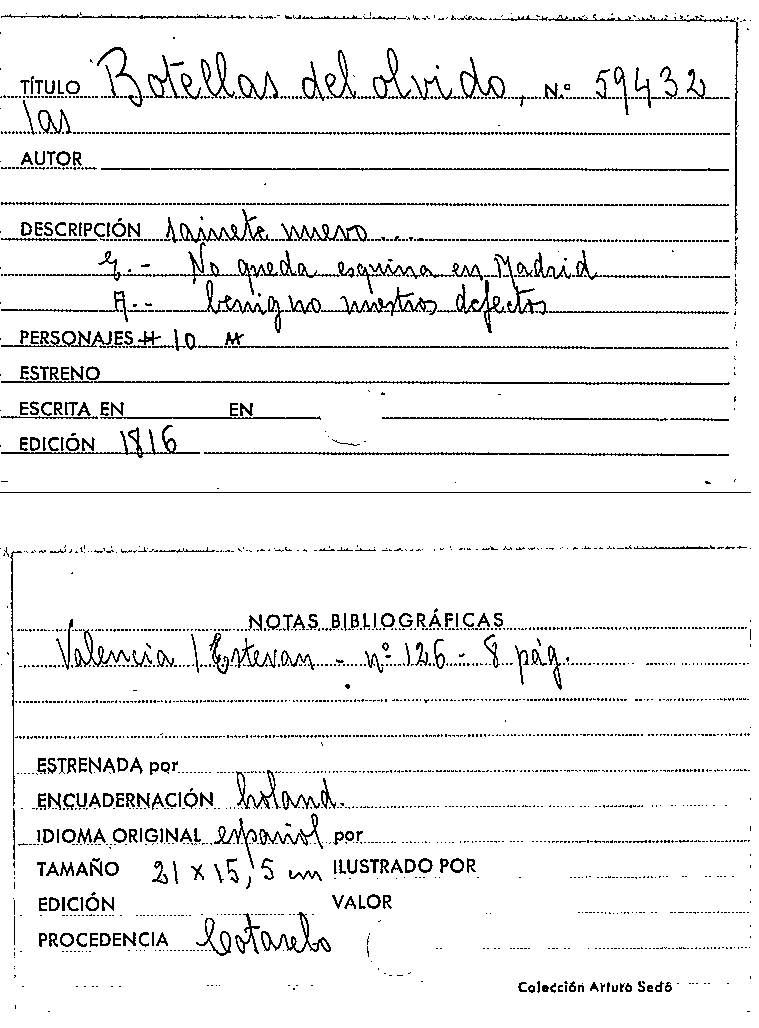 TÍTULO Botellas del olvido, N.º 59432
las
AUTOR
DESCRIPCIÓN sainete nuevo...
E.- No queda esquina en Madrid
A.- benigno nuestros defectos
PERSONAJES H 10 M
ESTRENO
ESCRITA EN EN
EDICIÓN 1816
NOTAS BIBLIOGRÁFICAS
Valencia / Estevan - nº 126 - 8 pág.
ESTRENADA por
ENCUADERNACIÓN holand.
IDIOMA ORIGINAL español por
TAMAÑO 21 x 15,5 cm ILUSTRADO POR
EDICIÓN VALOR
PROCEDENCIA Cotarelo
Colección Arturo Sedó